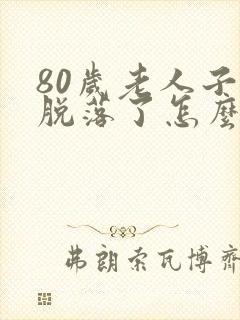 80歲老人子
脫落了怎麼
弗朗索瓦博齊